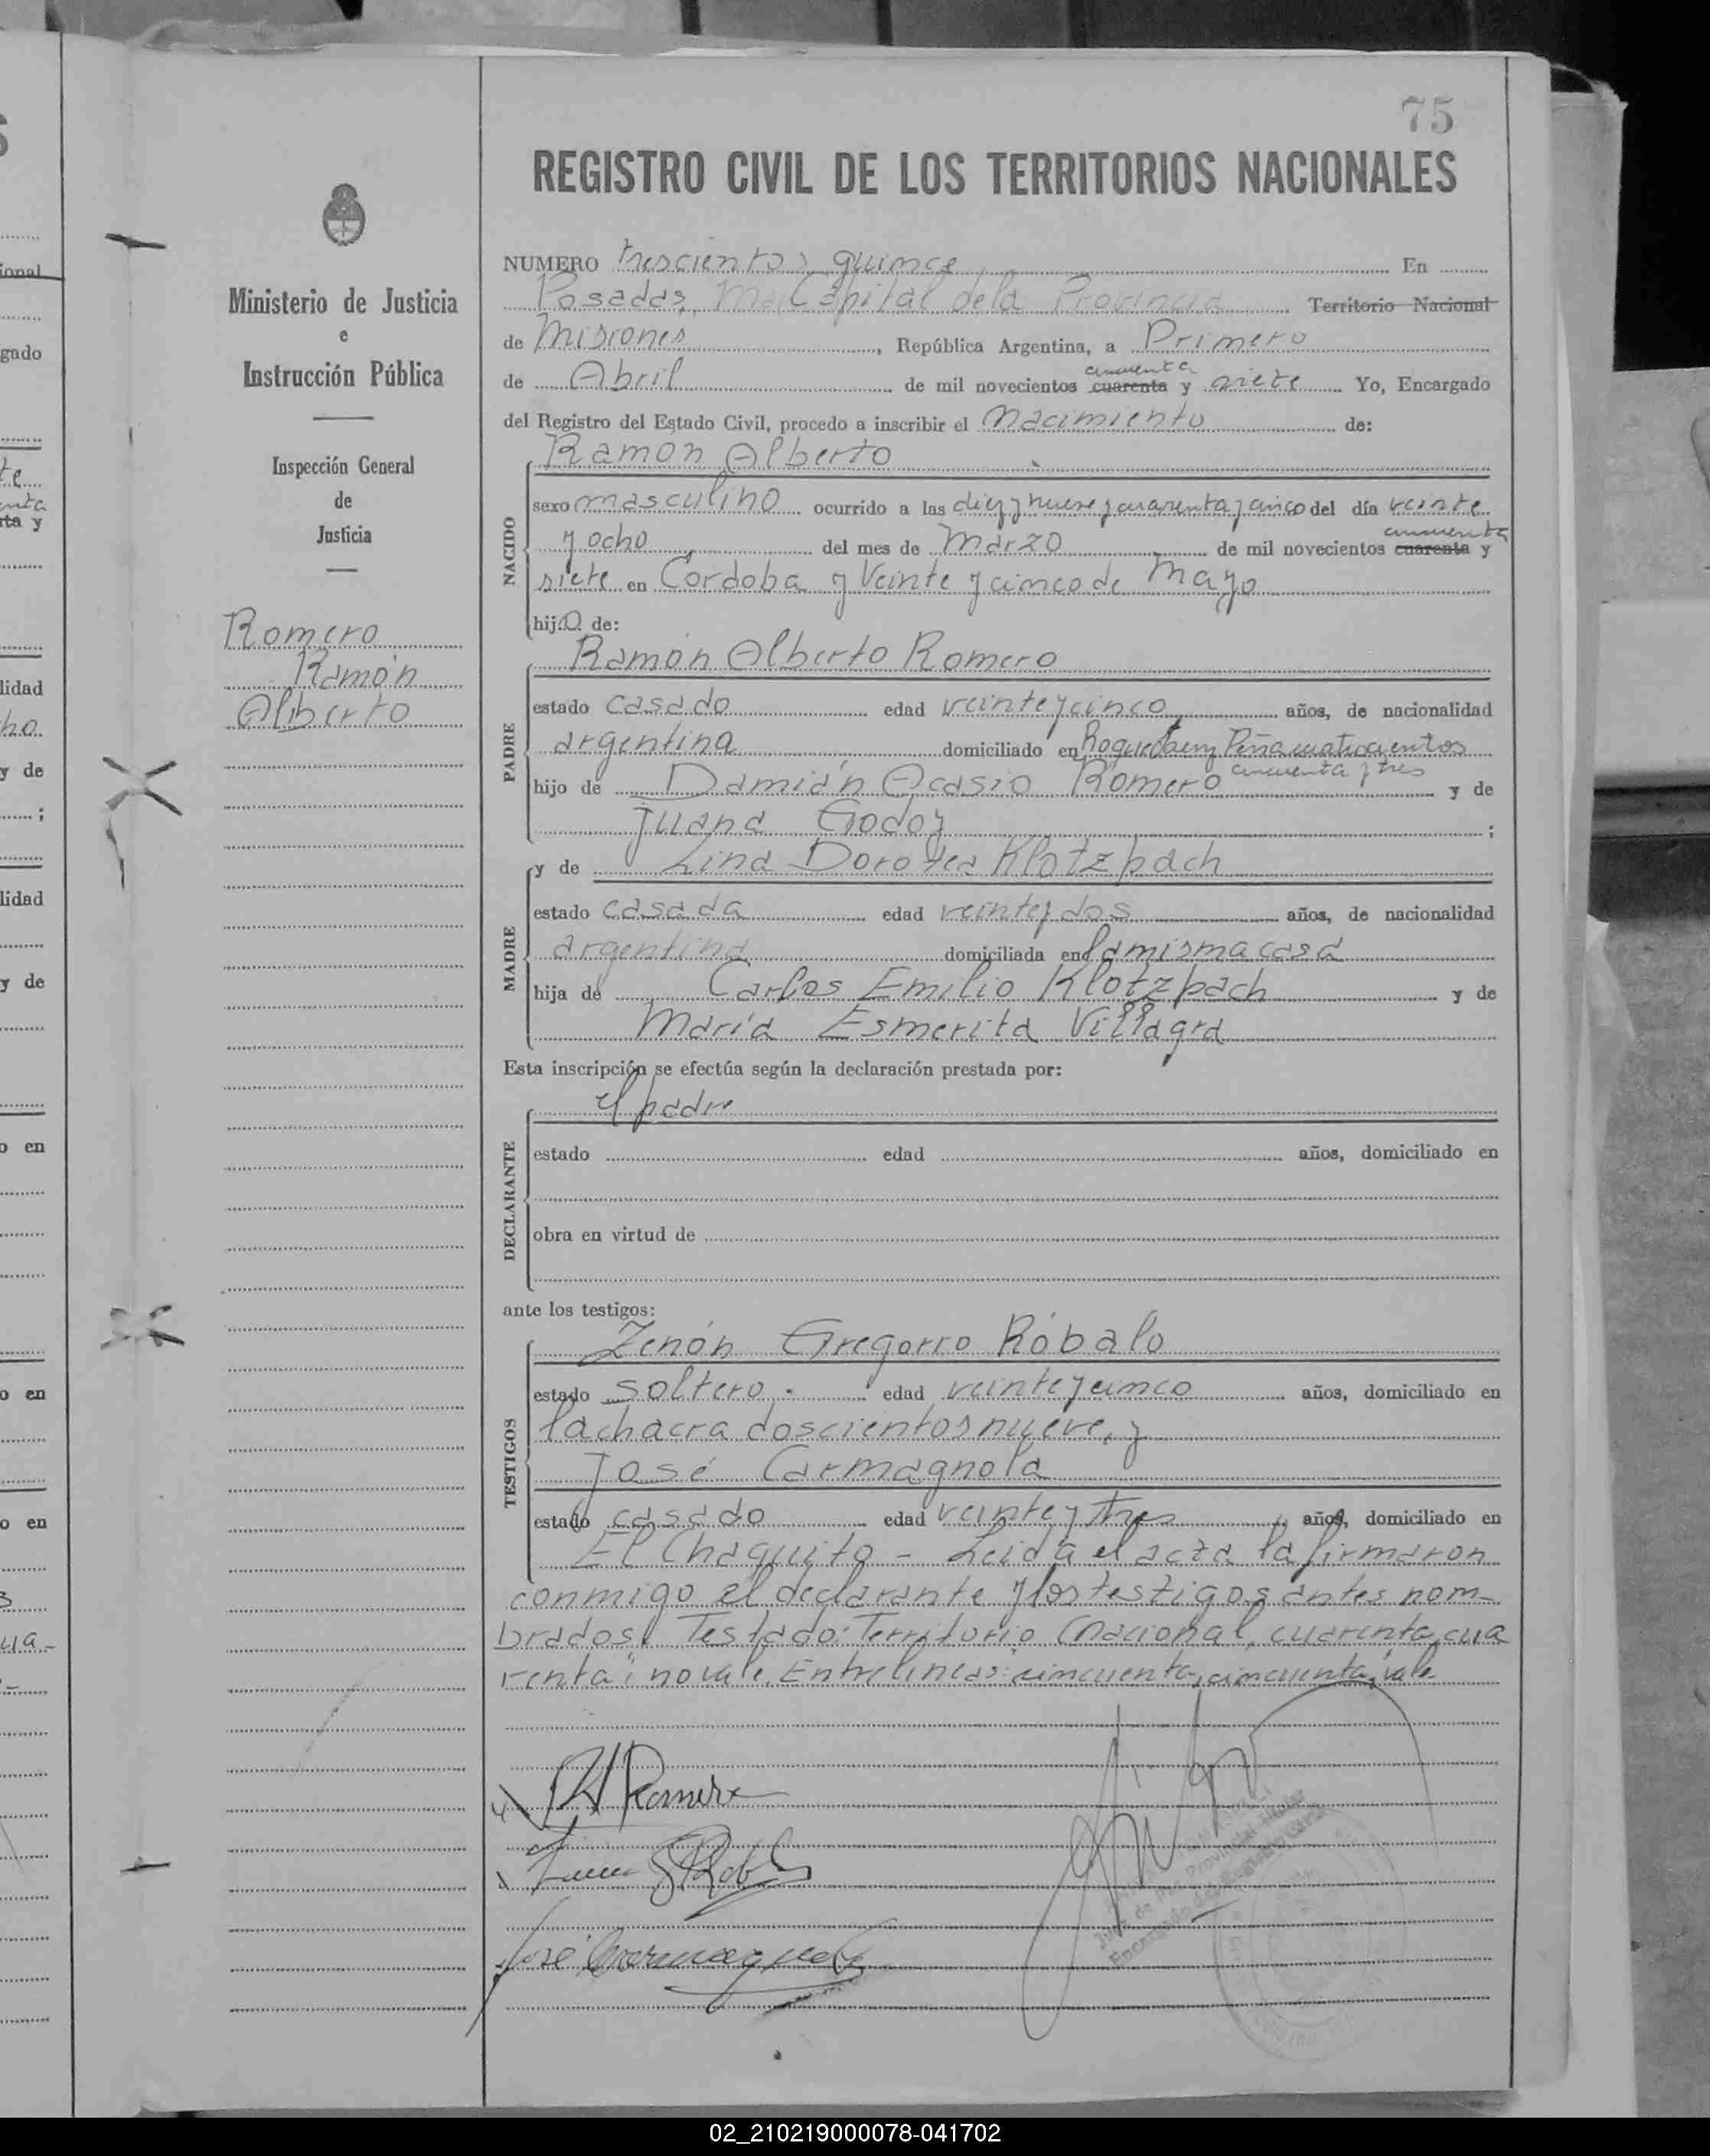 75
REGISTRO CIVIL DE LOS TERRITORIOS NACIONALES
Ministerio de Justicia
e
Instrucción Pública
Inspección General
de
Justicia
Romero
Ramón
Alberto
NUMERO trescientos quince En
Posadas, Capital de la Provincia Territorio Nacional
de Misiones, República Argentina, a Primero
cincuenta
de Abril de mil novecientos cuarenta y siete Yo, Encargado
del Registro del Estado Civil, procedo a inscribir el Nacimiento de:
Ramón Alberto
NACIDO
sexo masculino ocurrido a las diez y nueve y cuarenta y cinco del día veinte
cincuenta
y ocho del mes de Marzo de mil novecientos cuarenta y
siete en Córdoba y Veinte y cinco de Mayo
hijo de:
Ramón Alberto Romero
PADRE
estado casado edad veinte y cinco años, de nacionalidad
argentina domiciliado en Roque Saenz Peña cuatrocientos
cincuenta y tres
hijo de Damián Acasio Romero y de
Juana Godoy ;
y de Lina Dorotea Klotzbach
MADRE
estado casada edad veinte y dos años, de nacionalidad
argentina domiciliada en la misma casa
hija de Carlos Emilio Klotzbach y de
María Esmerita Villagra
Esta inscripción se efectúa según la declaración prestada por:
el padre
DECLARANTE
estado edad años, domiciliado en
obra en virtud de
ante los testigos:
Zenón Gregorio Róbalo
TESTIGOS
estado soltero. edad veinte y cinco años, domiciliado en
la chacra doscientos nueve, y
José Carmagnola
estado casado edad veinte y tres años, domiciliado en
El Chaquito - Leida el acta la firmaron
conmigo el declarante y los testigos antes nom-
brados. Testado: Territorio Nacional, cuarenta, cua
renta: no vale. Entrelineas: cincuenta, cincuenta, vale
R A Romero
José Carmagnola
Provincial Titular
Juez de Paz
Encargado del Registro Civil
02_210219000078-041702